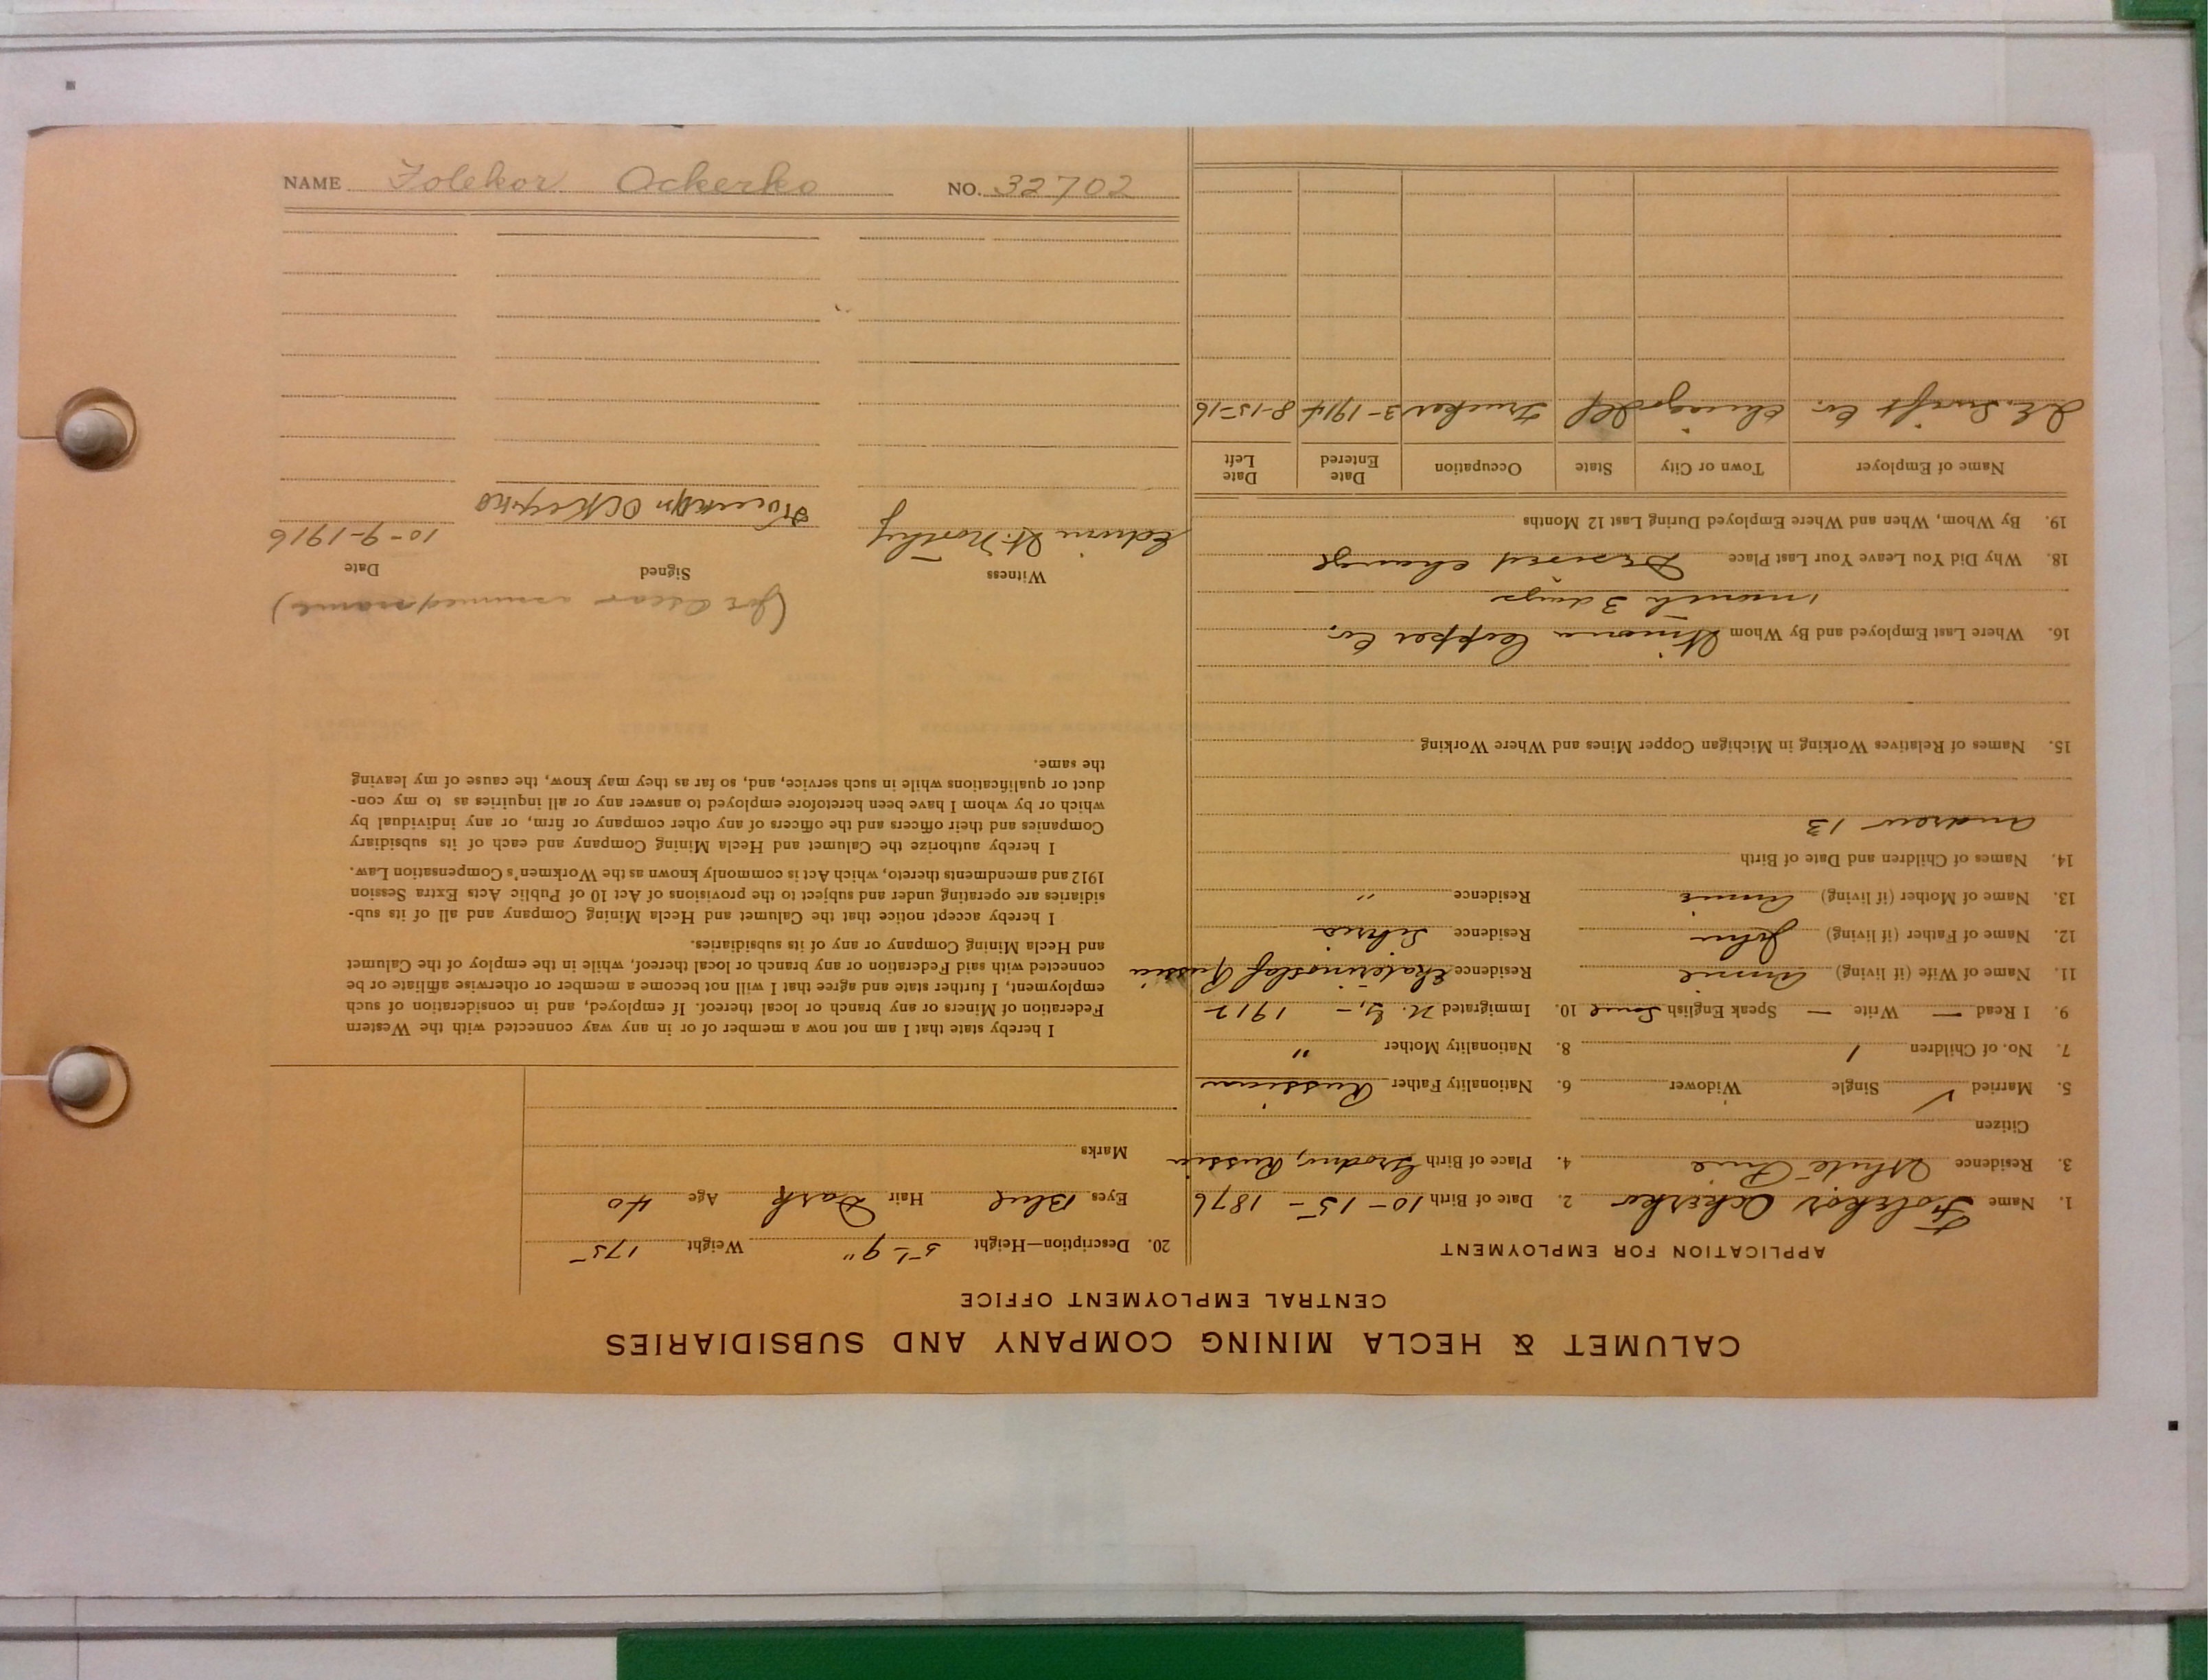 CALUMET & HECLA MINING COMPANY AND SUBSIDIARIES
CENTRAL EMPLOYMENT OFFICE
APPLICATION FOR EMPLOYMENT
1. Name Folekor Ackerko 2. Date of Birth 10-15-1876
3. Residence White Pine 4. Place of Birth Grodno, Russia
Citizen
5. Married ✓ Single Widower 6. Nationality Father Russian
7. No. of Children 1 8. Nationality Mother "
9. I Read — Write — Speak English Some 10. Immigrated N.Y. - 1912
11. Name of Wife (if living) Annie Residence Ekaterinoslaf Russia
12. Name of Father (if living) John Residence
13. Name of Mother (if living) Annie Residence "
14. Names of Children and Date of Birth
Andrew 13
15. Names of Relatives Working in Michigan Copper Mines and Where Working
16. Where Last Employed and By Whom Winona Copper Co.
1 month 3 days
18. Why Did You Leave Your Last Place Desired change
19. By Whom, When and Where Employed During Last 12 Months
Name of Employer Town or City State Occupation Date Entered Date Left
Swift Co. Chicago Ill Trucker 3-1914 8-15-16
20. Description—Height 5' 9" Weight 175
Eyes Blue Hair Dark Age 40
Marks
I hereby state that I am not now a member of or in any way connected with the Western
Federation of Miners or any branch or local thereof. If employed, and in consideration of such
employment, I further state and agree that I will not become a member or otherwise affiliate or be
connected with said Federation or any branch or local thereof, while in the employ of the Calumet
and Hecla Mining Company or any of its subsidiaries.
I hereby accept notice that the Calumet and Hecla Mining Company and all of its sub-
sidiaries are operating under and subject to the provisions of Act 10 of Public Acts Extra Session
1912 and amendments thereto, which Act is commonly known as the Workmen's Compensation Law.
I hereby authorize the Calumet and Hecla Mining Company and each of its subsidiary
Companies and their officers and the officers of any other company or firm, or any individual by
which or by whom I have been heretofore employed to answer any or all inquiries as to my con-
duct or qualifications while in such service, and, so far as they may know, the cause of my leaving
the same.
(for Oscar assumed name)
Witness Signed Date
Edwin H. Northey 10-9-1916
NAME Folekor Ackerko NO. 32702